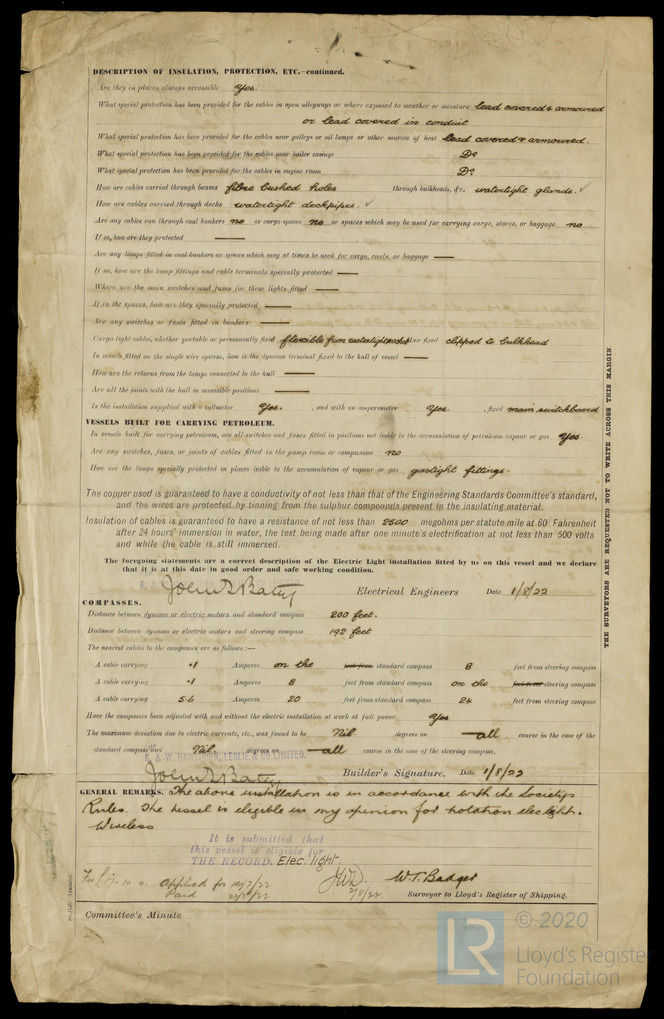 DESCRIPTION OF INSULATION, PROTECTION, ETC.—continued.
Are they in places always accessible Yes.
What special protection has been provided for the cables in open alleyways or where exposed to weather or moisture lead covered & armoured
or lead covered in conduit
What special protection has been provided for the cables near galleys or oil lamps or other sources of heat lead covered & armoured.
What special protection has been provided for the cables near boiler casings Do
What special protection has been provided for the cables in engine room Do
How are cables carried through beams fibre bushed holes through bulkheads, &c. watertight glands. ✓
How are cables carried through decks watertight deckpipes. ✓
Are any cables run through coal bunkers no or cargo spaces no or spaces which may be used for carrying cargo, stores, or baggage no
If so, how are they protected —
Are any lamps fitted in coal bunkers or spaces which may at times be used for cargo, coals, or baggage —
If so, how are the lamp fittings and cable terminals specially protected —
Where are the main switches and fuses for these lights fitted —
If in the spaces, how are they specially protected —
Are any switches or fuses fitted in bunkers —
Cargo light cables, whether portable or permanently fixed flexible from watertight fixed clipped to bulkhead
In vessels fitted on the single wire system, how is the dynamo terminal fixed to the hull of vessel —
How are the returns from the lamps connected to the hull —
Are all the joints with the hull in accessible positions —
Is the installation supplied with a voltmeter Yes. , and with an amperemeter Yes. , fixed main switchboard
VESSELS BUILT FOR CARRYING PETROLEUM.
In vessels built for carrying petroleum, are all switches and fuses fitted in positions not liable to the accumulation of petroleum vapour or gas Yes.
Are any switches, fuses, or joints of cables fitted in the pump room or companion no
How are the lamps specially protected in places liable to the accumulation of vapour or gas gastight fittings.
The copper used is guaranteed to have a conductivity of not less than that of the Engineering Standards Committee's standard,
and the wires are protected by tinning from the sulphur compounds present in the insulating material.
Insulation of cables is guaranteed to have a resistance of not less than 2500 megohms per statute mile at 60° Fahrenheit
after 24 hours' immersion in water, the test being made after one minute's electrification at not less than 500 volts
and while the cable is still immersed.
The foregoing statements are a correct description of the Electric Light installation fitted by us on this vessel and we declare
that it is at this date in good order and safe working condition.
John Batey Electrical Engineers Date 1/8/22
COMPASSES.
Distance between dynamo or electric motors and standard compass 200 feet.
Distance between dynamo or electric motors and steering compass 192 feet
The nearest cables to the compasses are as follows:—
A cable carrying .1 Amperes on the feet from standard compass 8 feet from steering compass
A cable carrying .1 Amperes 8 feet from standard compass on the feet from steering compass
A cable carrying 5.6 Amperes 20 feet from standard compass 24 feet from steering compass
Have the compasses been adjusted with and without the electric installation at work at full power Yes
The maximum deviation due to electric currents, etc., was found to be Nil degrees on all course in the case of the
standard compass and Nil degrees on all course in the case of the steering compass.
R. & W. HAWTHORN, LESLIE & CO LIMITED.
John Batey Builder's Signature. Date 1/8/22
GENERAL REMARKS. The above installation is in accordance with the Societys
Rules. The vessel is eligible in my opinion for notation elec light.
Wireless
It is submitted that
this vessel is eligible for
THE RECORD. Elec. light.
Applied for
Paid
2/8/22.
W. T. Badger
Surveyor to Lloyd's Register of Shipping.
Committee's Minute
THE SURVEYORS ARE REQUESTED NOT TO WRITE ACROSS THIS MARGIN
© 2020
LR
Lloyd's Register
Foundation